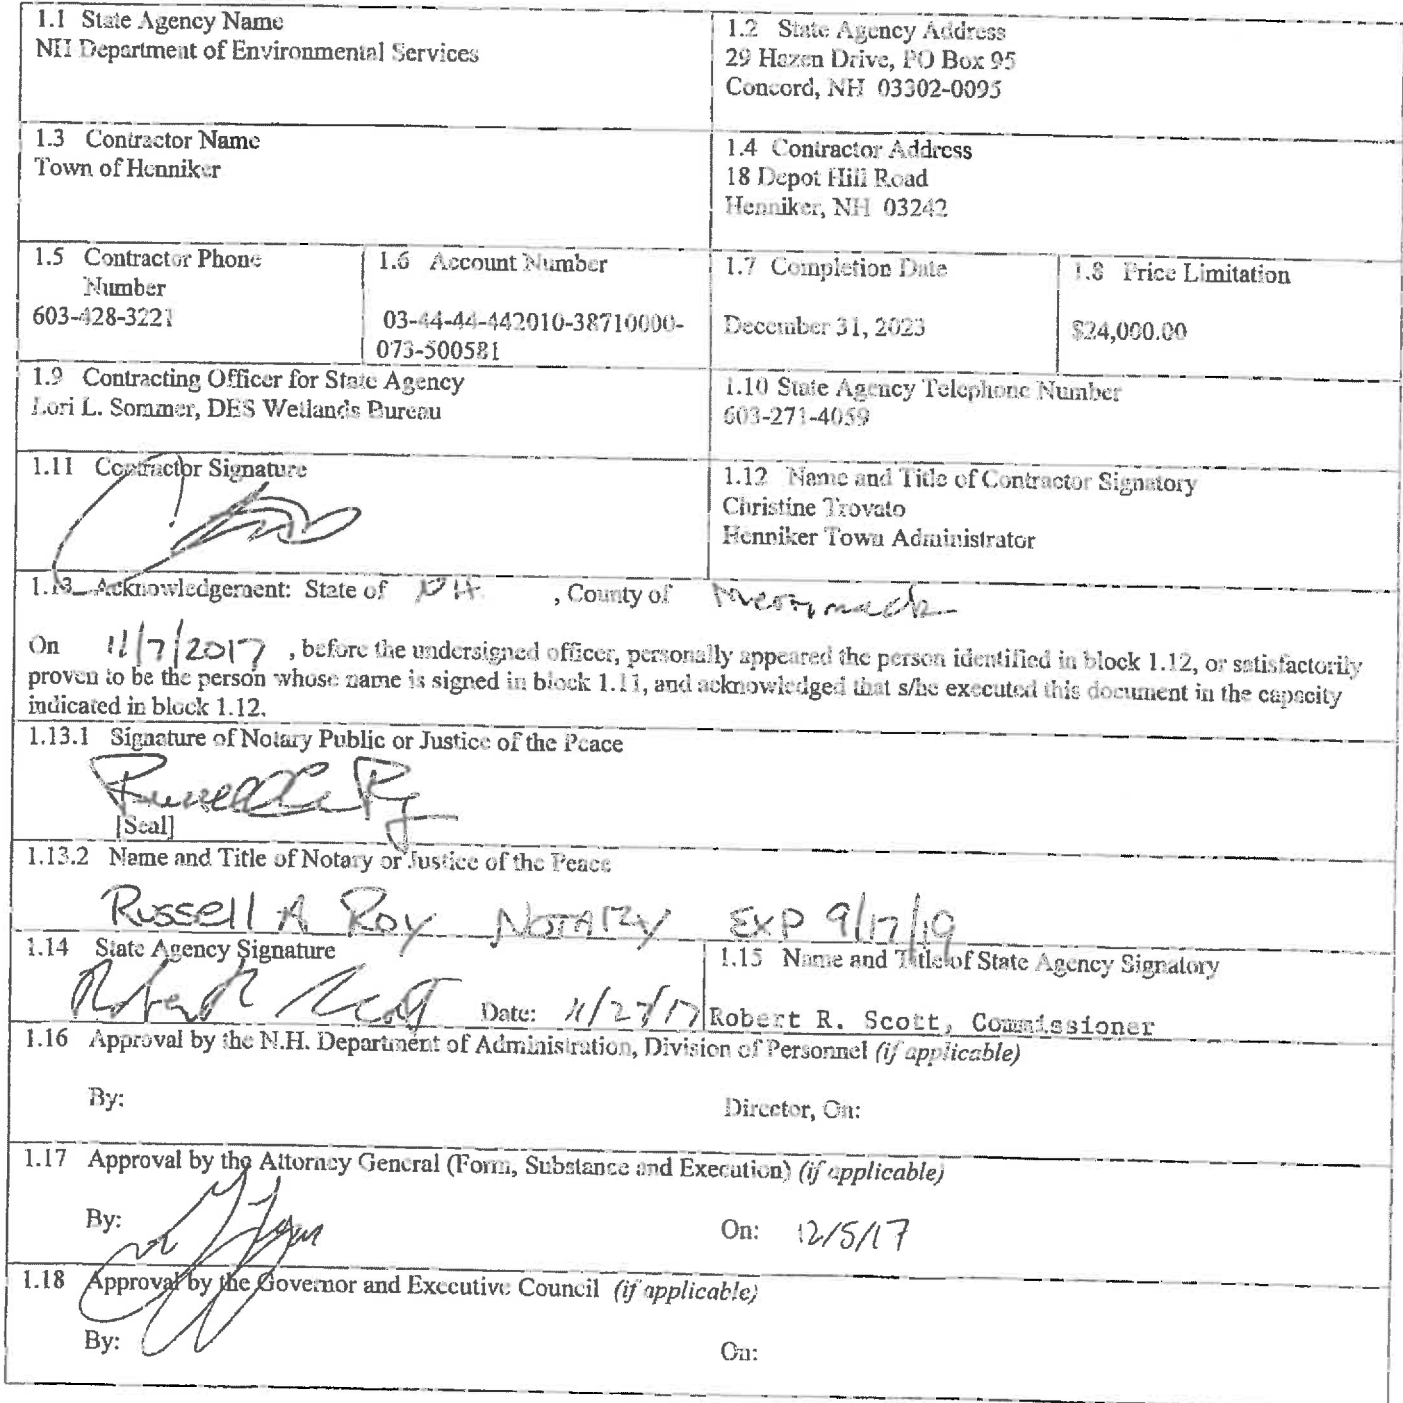 1.1 State Agency Name
NH Department of Environmental Services
1.2 State Agency Address
29 Hazen Drive, PO Box 95
Concord, NH 03302-0095
1.3 Contractor Name
Town of Henniker
1.4 Contractor Address
18 Depot Hill Road
Henniker, NH 03242
1.5 Contractor Phone
Number
603-428-3221
1.6 Account Number
03-44-44-442010-38710000-
073-500581
1.7 Completion Date
December 31, 2023
1.8 Price Limitation
$24,000.00
1.9 Contracting Officer for State Agency
Lori L. Sommer, DES Wetlands Bureau
1.10 State Agency Telephone Number
603-271-4059
1.11 Contractor Signature
1.12 Name and Title of Contractor Signatory
Christine Trovato
Henniker Town Administrator
1.13 Acknowledgement: State of NH , County of Merrimack
On 11/7/2017 , before the undersigned officer, personally appeared the person identified in block 1.12, or satisfactorily
proven to be the person whose name is signed in block 1.11, and acknowledged that s/he executed this document in the capacity
indicated in block 1.12.
1.13.1 Signature of Notary Public or Justice of the Peace
[Seal]
1.13.2 Name and Title of Notary or Justice of the Peace
Russell A Roy NOTARY EXP 9/17/19
1.14 State Agency Signature
Robert R Scott Date: 11/27/17
1.15 Name and Title of State Agency Signatory
Robert R. Scott, Commissioner
1.16 Approval by the N.H. Department of Administration, Division of Personnel (if applicable)
By: Director, On:
1.17 Approval by the Attorney General (Form, Substance and Execution) (if applicable)
By: On: 12/5/17
1.18 Approval by the Governor and Executive Council (if applicable)
By: On: